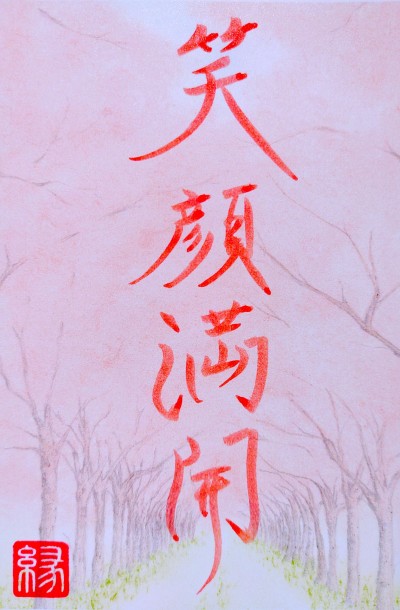 笑顔満開
縁